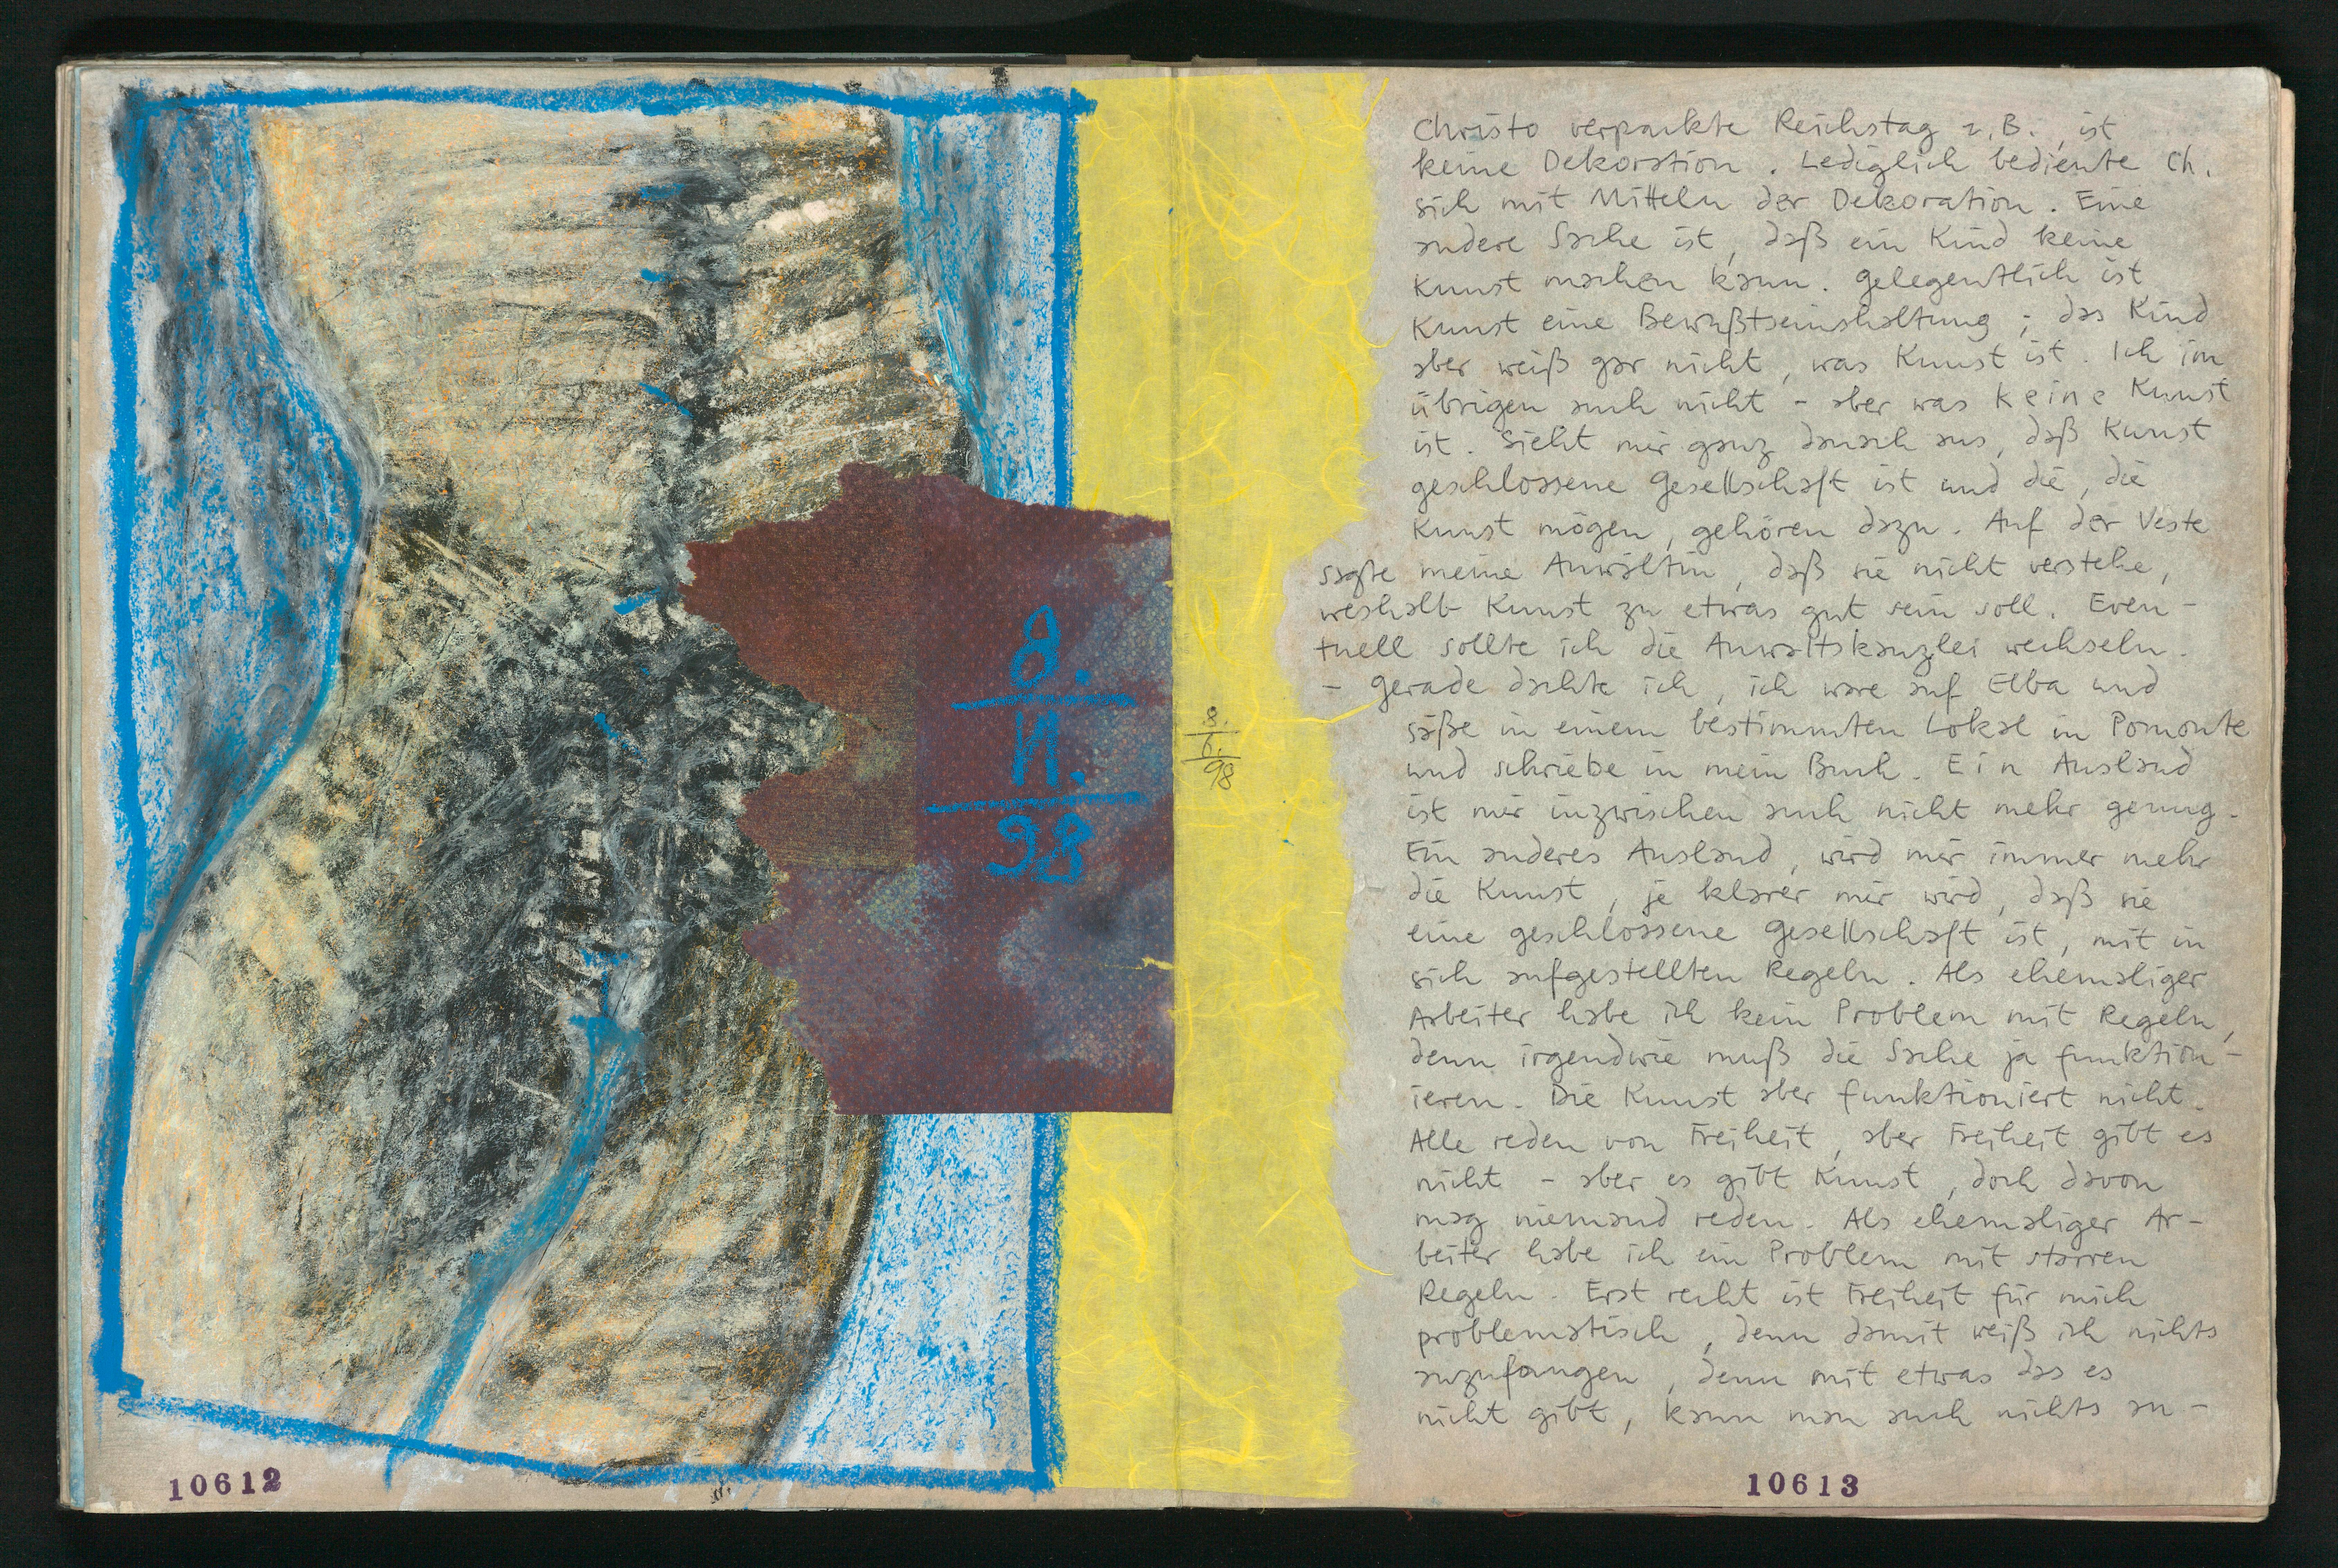 8.
11.
98
8.
6.
98
Christo verpackte Reichstag z.B., ist
keine Dekoration. Lediglich bediente Ch.
sich mit Mitteln der Dekoration. Eine
andere Sache ist, daß ein Kind keine
Kunst machen kann. Gelegentlich ist
Kunst eine Bewußtseinshaltung; das Kind
aber weiß gar nicht, was Kunst ist. Ich im
übrigen auch nicht - aber was keine Kunst
ist. Sieht mir ganz danach aus, daß Kunst
geschlossene Gesellschaft ist und die, die
Kunst mögen, gehören dazu. Auf der Veste
sagte meine Anwältin, daß sie nicht verstehe,
weshalb Kunst zu etwas gut sein soll. Even-
tuell sollte ich die Anwaltskanzlei wechseln.
- Gerade dachte ich, ich wäre auf Elba und
säße in einem bestimmten Lokal in Pomonte
und schriebe in mein Buch. Ein Ausland
ist mir inzwischen auch nicht mehr genug.
Ein anderes Ausland, wird mir immer mehr
die Kunst, je klarer mir wird, daß sie
eine geschlossene Gesellschaft ist, mit in
sich aufgestellten Regeln. Als ehemaliger
Arbeiter habe ich kein Problem mit Regeln,
denn irgendwie muß die Sache ja funktion-
ieren. Die Kunst aber funktioniert nicht.
Alle reden von Freiheit, aber Freiheit gibt es
nicht - aber es gibt Kunst, doch davon
mag niemand reden. Als ehemaliger Ar-
beiter habe ich ein Problem mit starren
Regeln. Erst recht ist Freiheit für mich
problematisch, denn damit weiß ich nichts
anzufangen, denn mit etwas das es
nicht gibt, kann man auch nichts an-
10612
10613